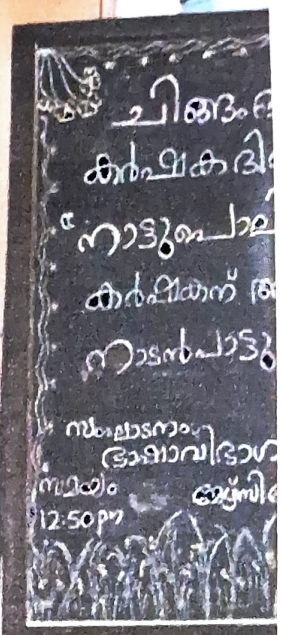 ചിങ്ങം
കർഷക ദി
"നാട്ടുപൊലി
കർഷകന്
നാടൻപാട്ടു
സംഘാടനം:
ഭാഷാവിഭാഗ
സമയം
12:50 pm